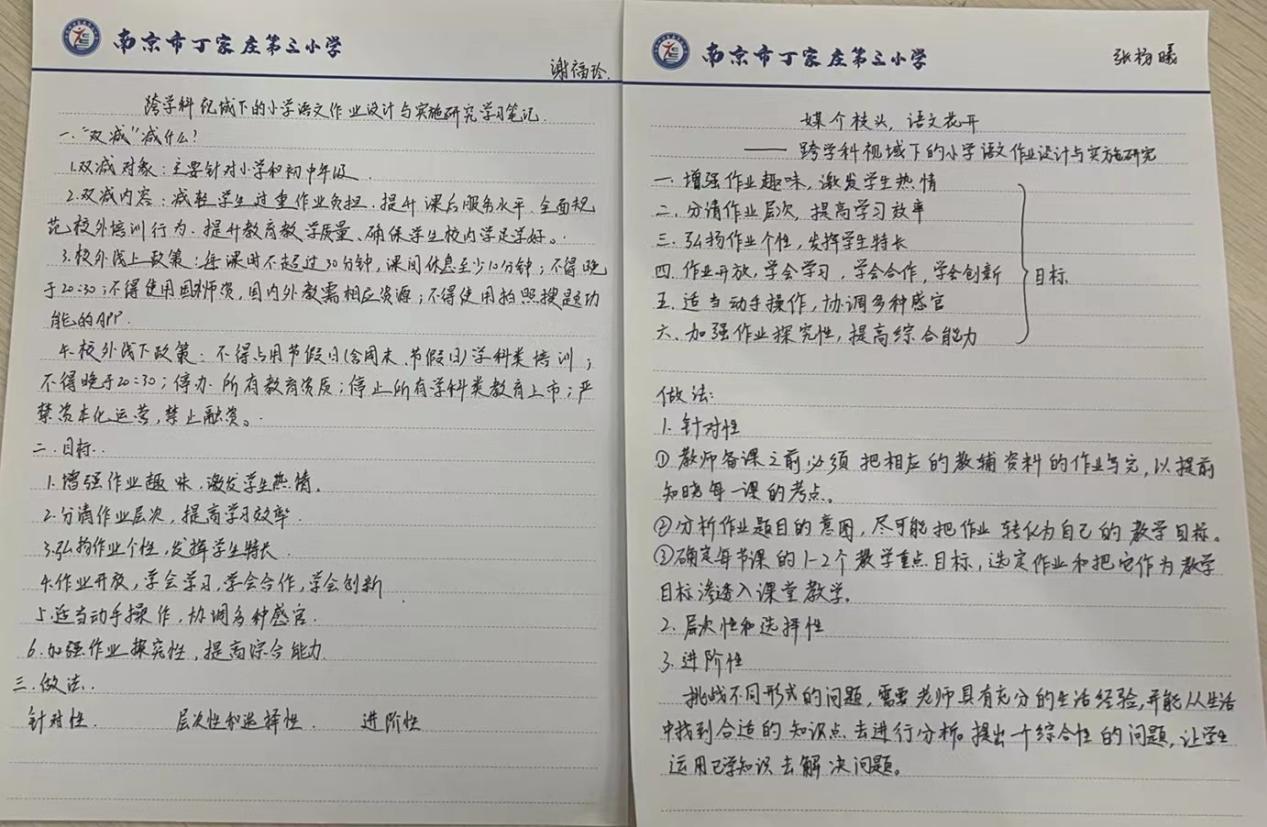 南京市丁家庄第三小学
谢福玲.
跨学科视域下的小学语文作业设计与实施研究学习笔记.
一."双减"减什么?
1.双减对象:主要针对小学和初中年级.
2.双减内容:减轻学生过重作业负担.提升课后服务水平.全面规
范校外培训行为.提升教育教学质量、确保学生校内学足学好。
3.校外线上政策:每课时不超过30分钟,课间休息至少10分钟;不得晚
于20:30;不得使用师资,国内外教需相应资源;不得使用拍照搜题功
能的APP.
4.校外线下政策:不得占用节假日(含周末、节假日)学科类培训;
不得晚于20:30;停办.所有教育资质;停止所有学科类教育上市;严
禁资本化运营,禁止融资。
二.目标.
1.增强作业趣味.激发学生热情.
2.分清作业层次,提高学习效率.
3.弘扬作业个性,发挥学生特长.
4.作业开放,学会学习,学会合作,学会创新
5.适当动手操作,协调多种感官.
6.加强作业探究性,提高综合能力.
三.做法.
针对性. 层次性和选择性. 进阶性
南京市丁家庄第三小学
张杨曦
媒介枝头,语文花开
——跨学科视域下的小学语文作业设计与实施研究
一.增强作业趣味,激发学生热情
二.分清作业层次,提高学习效率
三.弘扬作业个性,发挥学生特长
四.作业开放,学会学习,学会合作,学会创新
五.适当动手操作,协调多种感官
六.加强作业探究性,提高综合能力
目标
做法:
1.针对性
①教师备课之前必须把相应的教辅资料的作业写完,以提前
知晓每一课的考点。
②分析作业题目的意图,尽可能把作业转化为自己的教学目标。
③确定每节课的1-2个教学重点目标,选定作业和把它作为教学
目标渗透入课堂教学。
2.层次性和选择性
3.进阶性
挑战不同形式的问题,需要老师具有充分的生活经验,并能从生活
中找到合适的知识点去进行分析。提出一个综合性的问题,让学生
运用已学知识去解决问题。